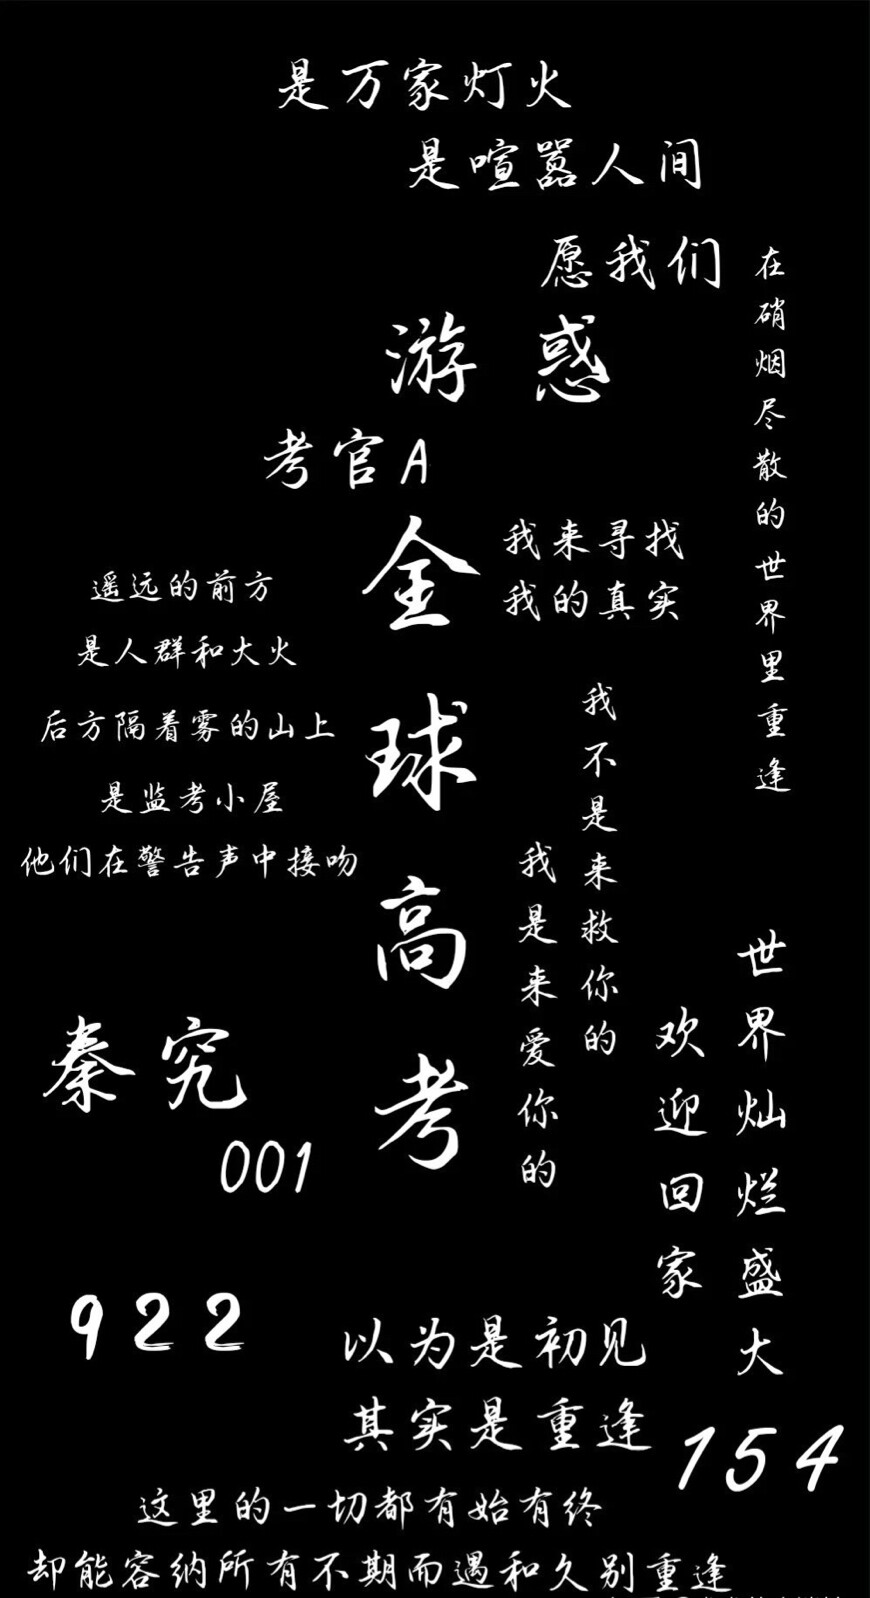 是万家灯火
是喧嚣人间
愿我们
在硝烟尽散的世界里重逢
游惑
考官A
全球高考
我来寻找
我的真实
遥远的前方
是人群和大火
后方隔着雾的山上
是监考小屋
他们在警告声中接吻
我不是来救你的
我是来爱你的
秦究
001
世界灿烂盛大
欢迎回家
922
以为是初见
其实是重逢
154
这里的一切都有始有终
却能容纳所有不期而遇和久别重逢